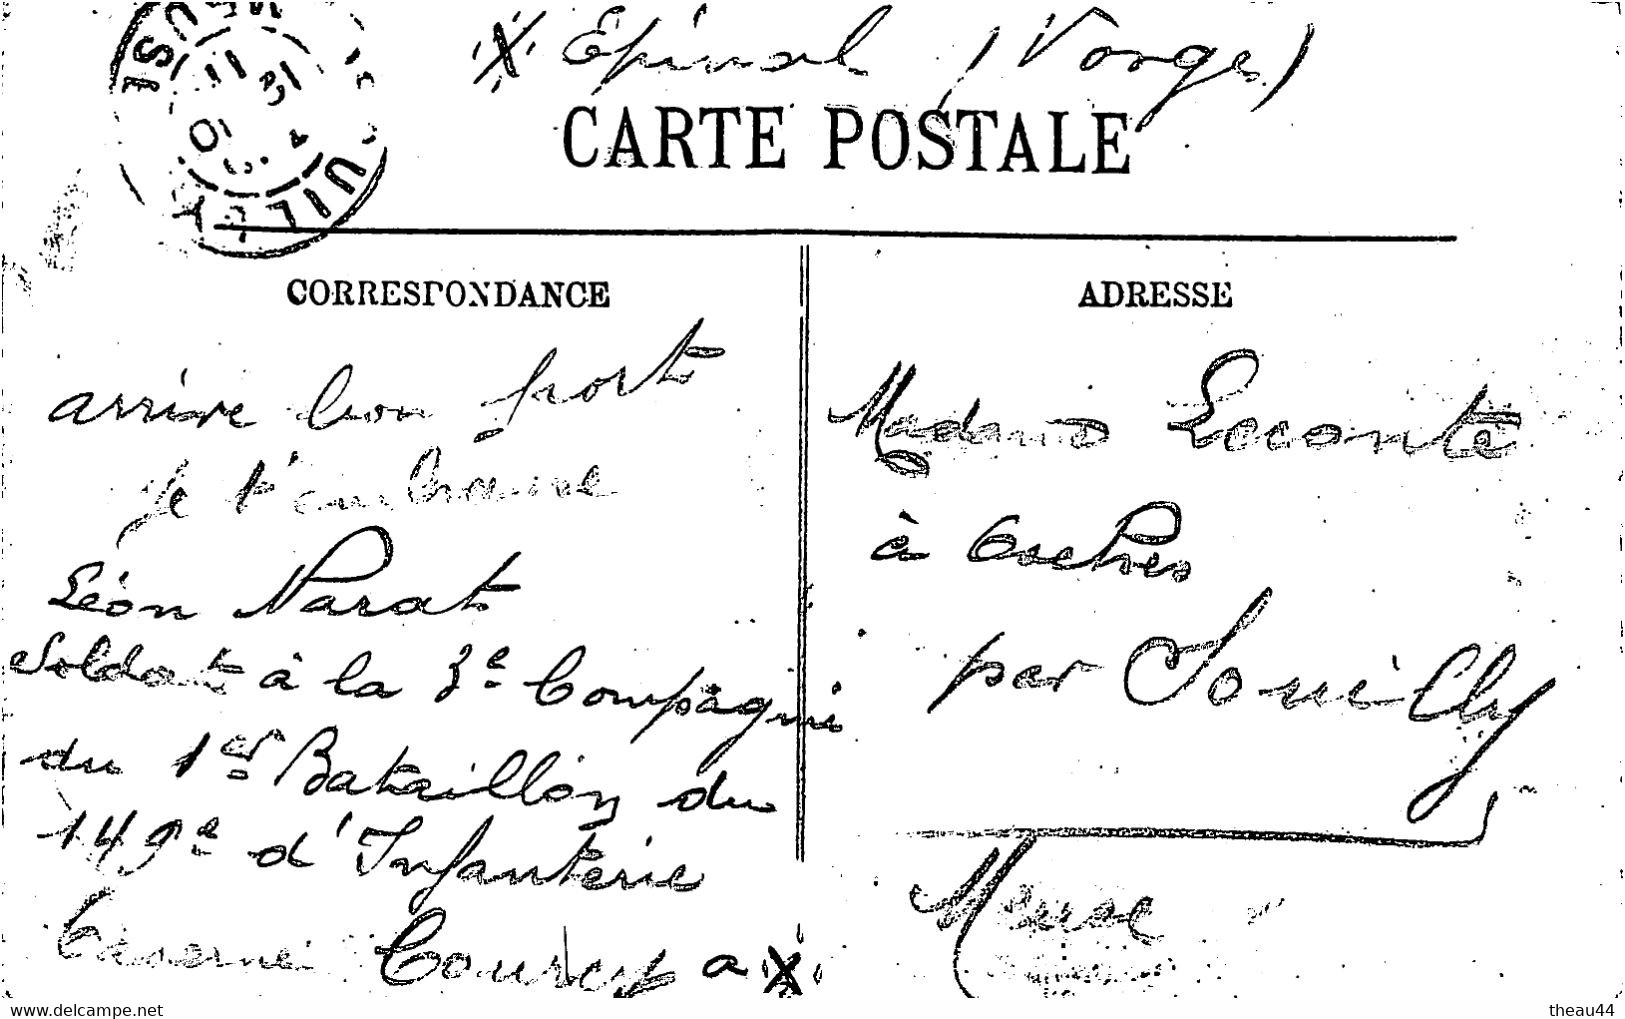 X Epinal (Vosges)
CARTE POSTALE
SOUILLY
MEUSE
CORRESPONDANCE
ADRESSE
arrive bon port
je t'embrasse
Léon Narat
Soldat à la 3e Compagnie
du 1er Bataillon du
149e d'Infanterie
Caserne Courcy a X
Madame Leconte
à Osches
par Souilly
Meuse
www.delcampe.net
theau44